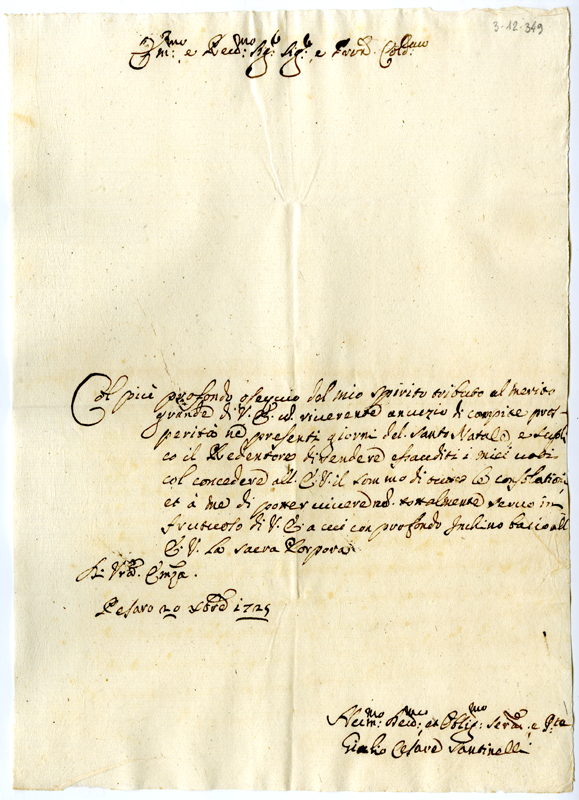 3-12-349
Em:mo e Rev:mo Sig:r Sig:r, e Pron: Col:mo
Col più profondo osequio del mio spirito tributo al merito
grande di V. E. un riverente annuzio di compite pros-
perità ne presenti giorni del Santo Natale, e supli-
co il Redentore di rendere esauditi i miei voti
col concedere all' E. V. il sommo di tutte le consolationi
et à me di poter vivere non totalmente servo in-
frutuoso di V. E. a cui con profondo Inchino bacio all'
E. V. la sacra Porpora
Di Vra: Emza.
Pesaro 20 Xbre 1725
Giulio Cesare Santinelli